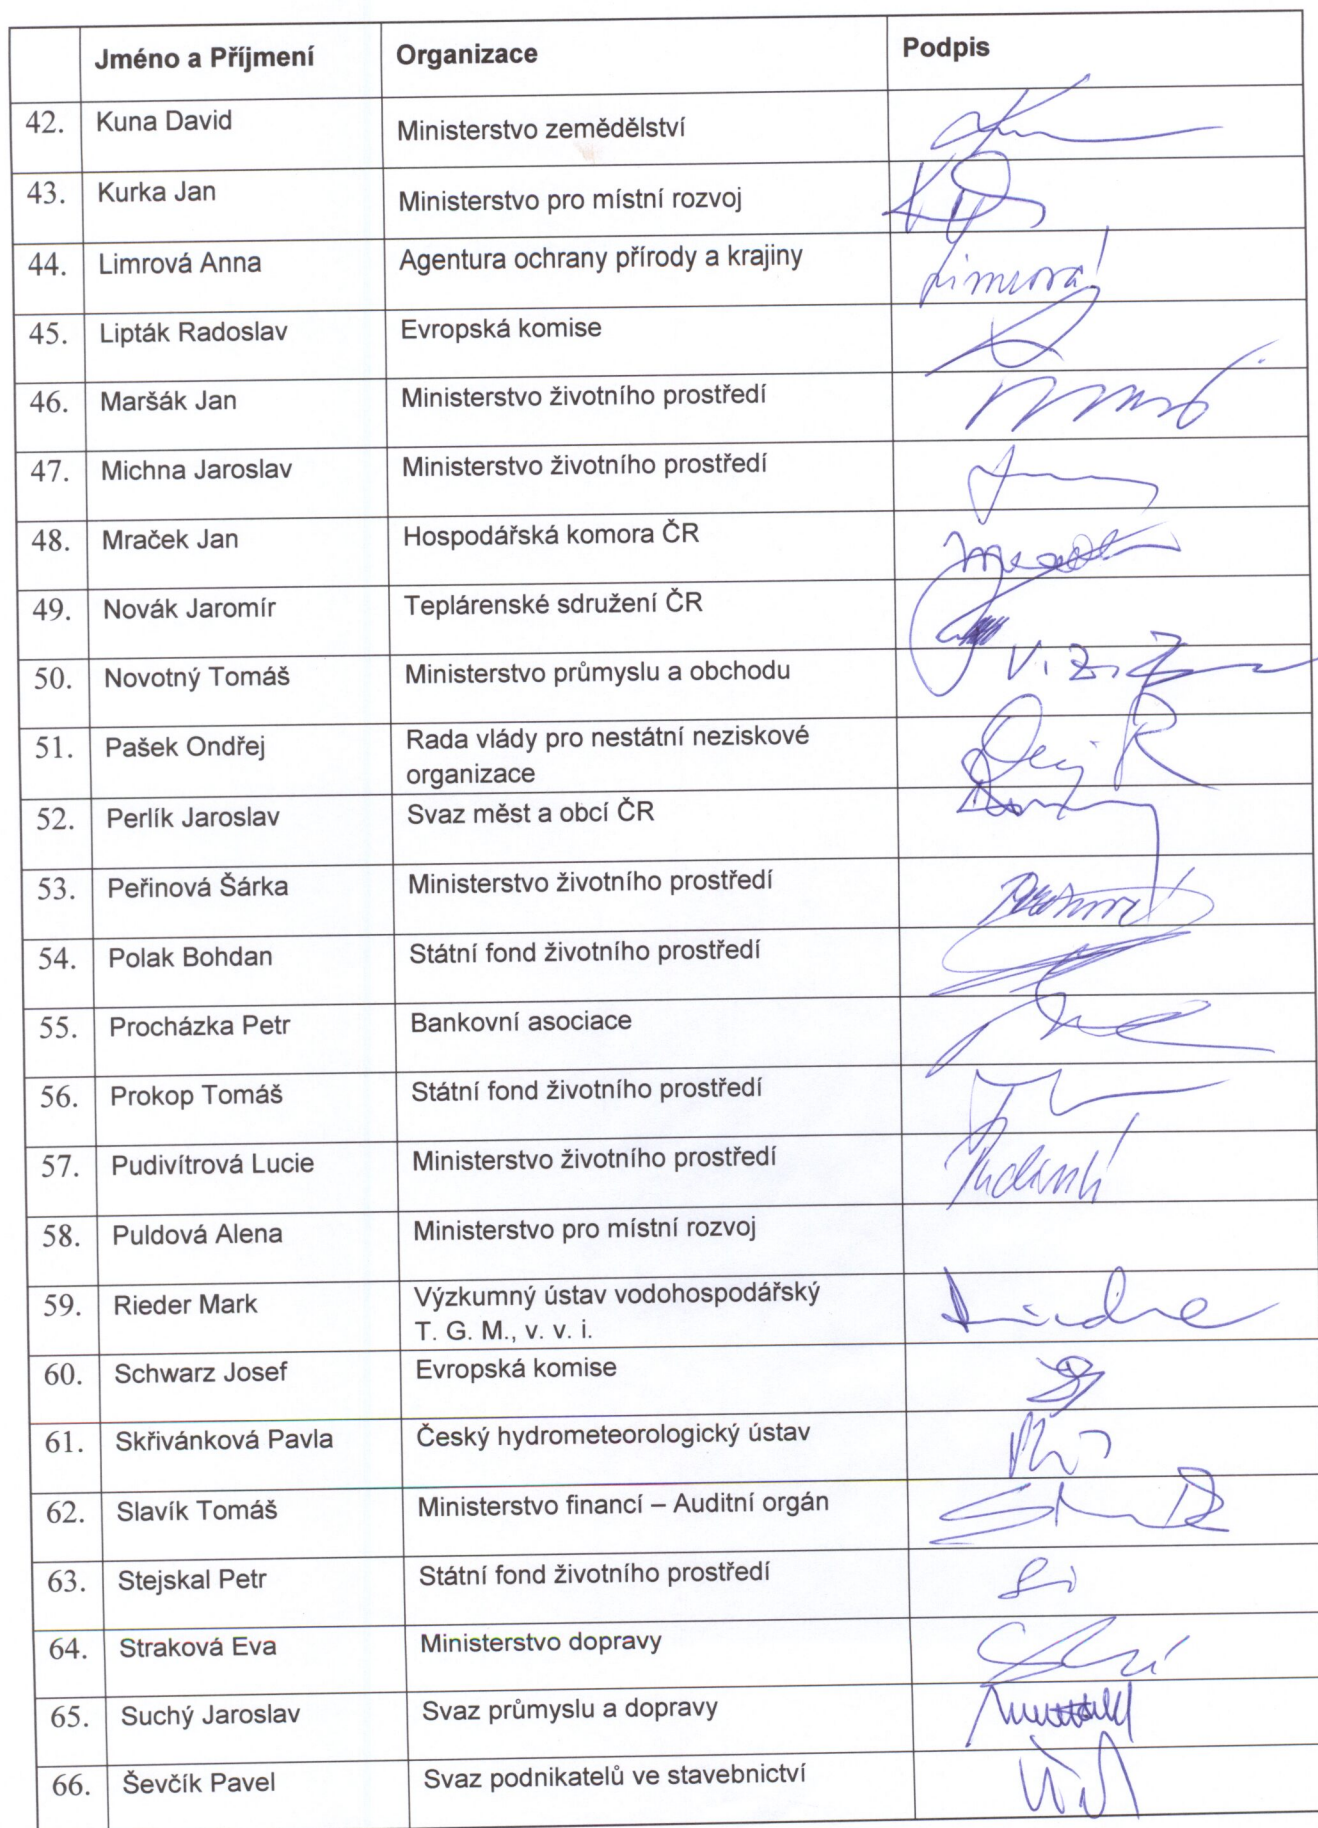 Jméno a Příjmení Organizace Podpis
42. Kuna David Ministerstvo zemědělství
43. Kurka Jan Ministerstvo pro místní rozvoj
44. Limrová Anna Agentura ochrany přírody a krajiny Limrová
45. Lipták Radoslav Evropská komise
46. Maršák Jan Ministerstvo životního prostředí
47. Michna Jaroslav Ministerstvo životního prostředí
48. Mraček Jan Hospodářská komora ČR
49. Novák Jaromír Teplárenské sdružení ČR
50. Novotný Tomáš Ministerstvo průmyslu a obchodu
51. Pašek Ondřej Rada vlády pro nestátní neziskové
organizace
52. Perlík Jaroslav Svaz měst a obcí ČR
53. Peřinová Šárka Ministerstvo životního prostředí
54. Polak Bohdan Státní fond životního prostředí
55. Procházka Petr Bankovní asociace
56. Prokop Tomáš Státní fond životního prostředí
57. Pudivítrová Lucie Ministerstvo životního prostředí
58. Puldová Alena Ministerstvo pro místní rozvoj
59. Rieder Mark Výzkumný ústav vodohospodářský
T. G. M., v. v. i.
60. Schwarz Josef Evropská komise
61. Skřivánková Pavla Český hydrometeorologický ústav
62. Slavík Tomáš Ministerstvo financí – Auditní orgán
63. Stejskal Petr Státní fond životního prostředí
64. Straková Eva Ministerstvo dopravy
65. Suchý Jaroslav Svaz průmyslu a dopravy
66. Ševčík Pavel Svaz podnikatelů ve stavebnictví